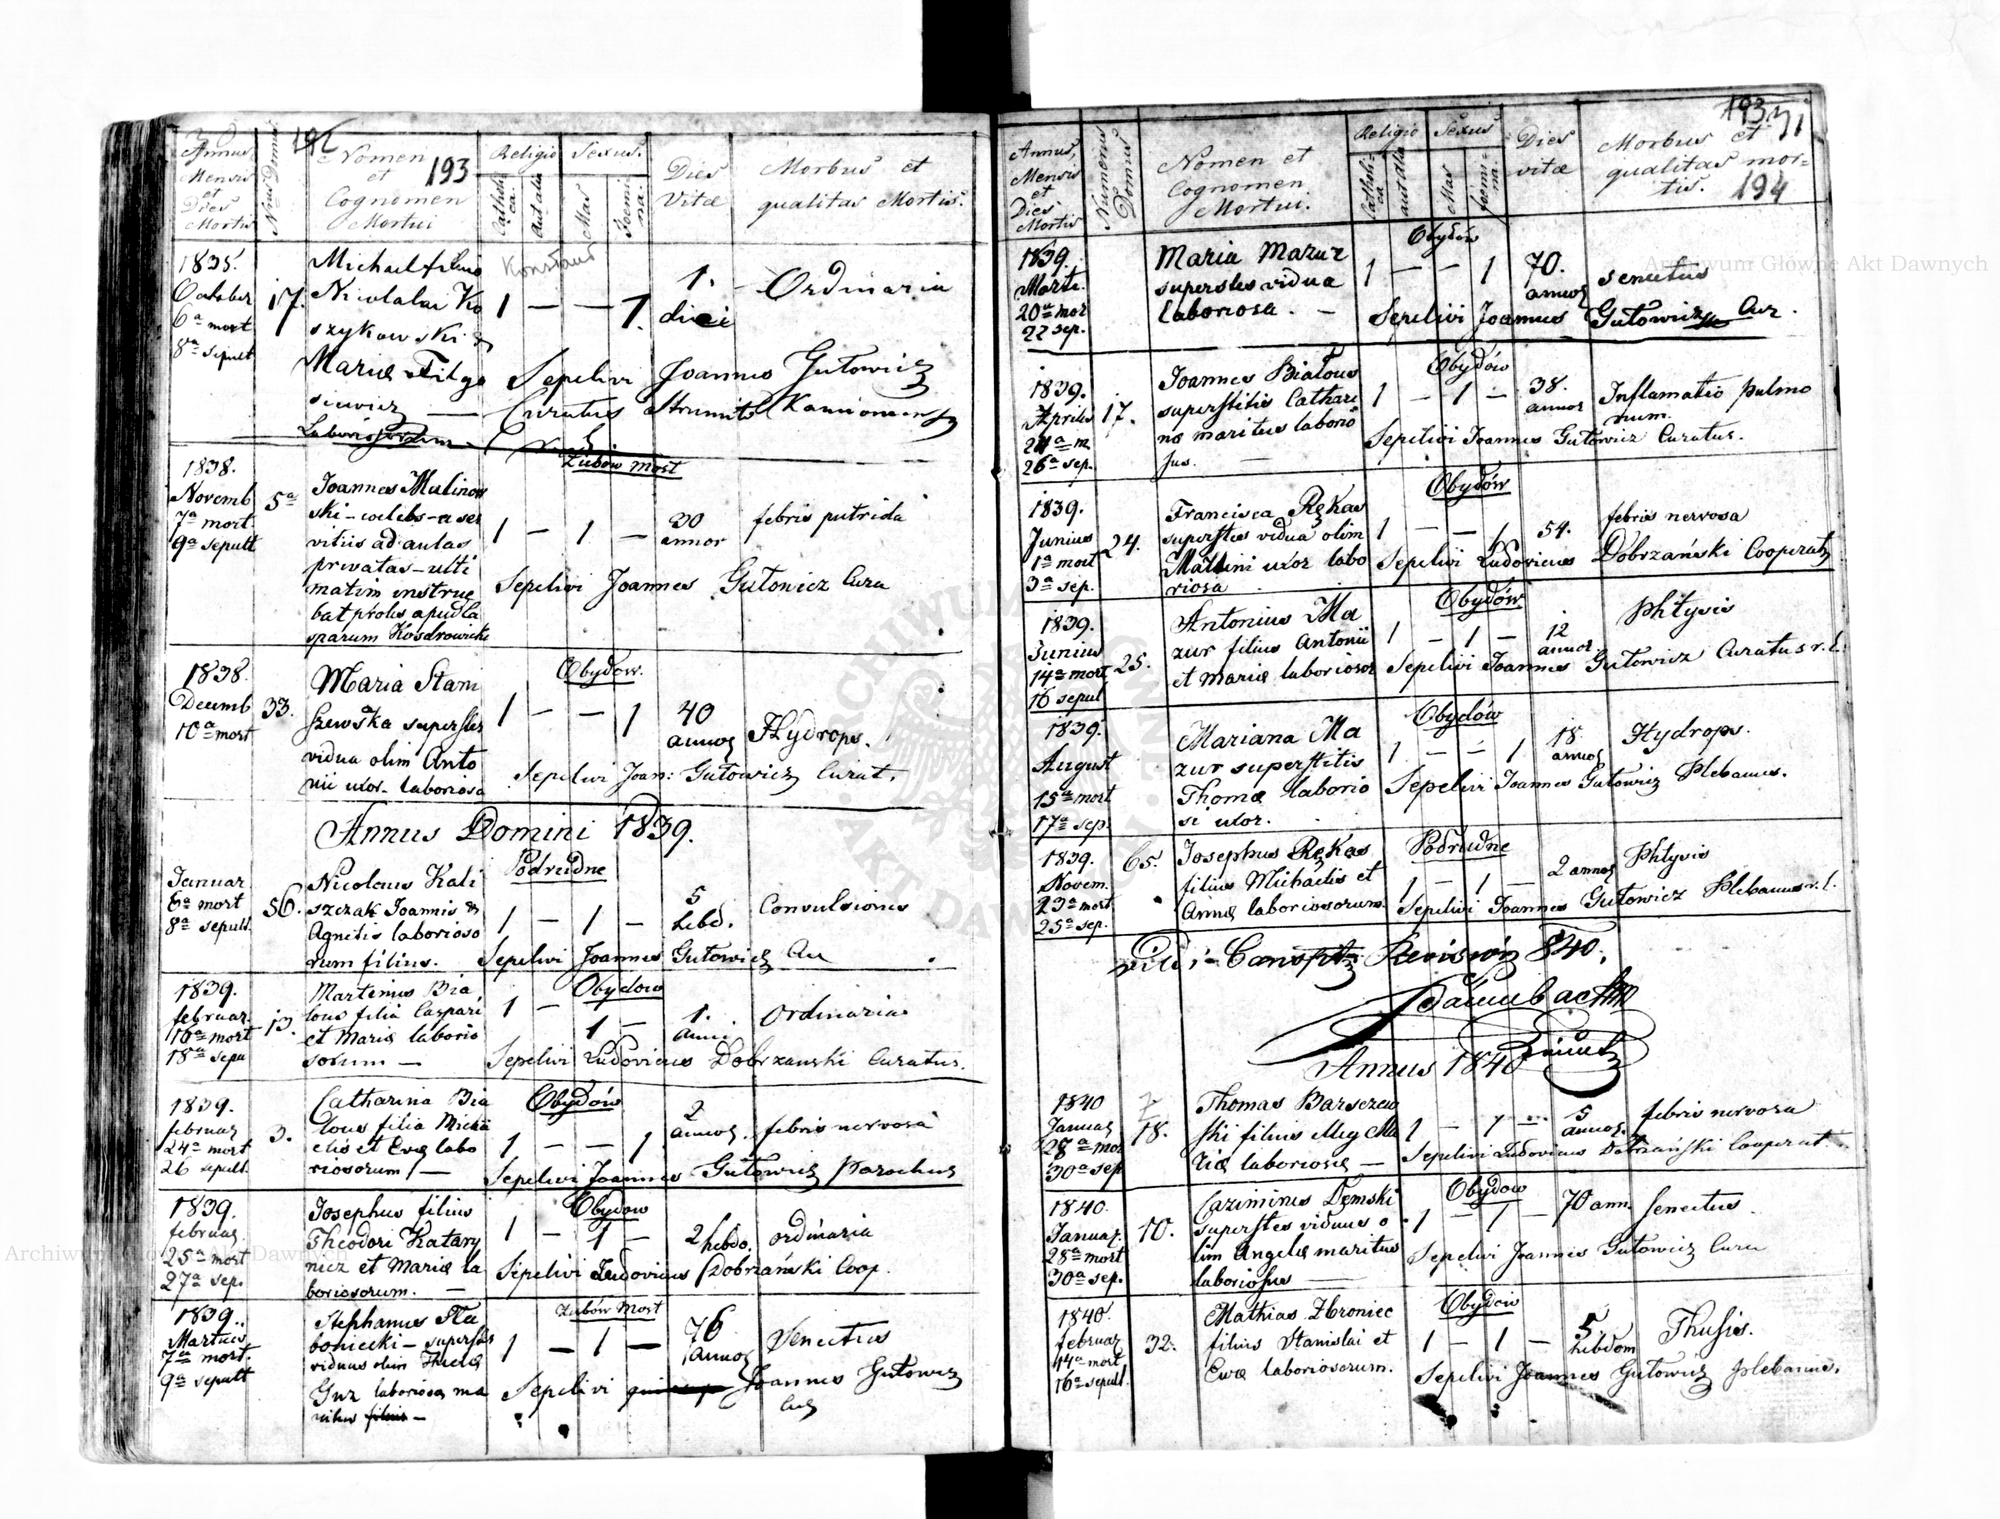 192
193
Annus
Mensis
et
Dies
Mortis
Nrus Domus
Nomen
et
Cognomen
Mortui
Religio
Catholica.
Aut alia
Sexus.
Mas
Foemina.
Dies
Vitæ
Morbus et
qualitas Mortis.
1835.
October
6ª mort
8ª sepult
17.
Michael filius
Nicolai Ko
szykowski &
Mariæ
siewicz —
Laboriosorum
1 — — 1.
1.
diei
Ordinaria
Sepelivi Joannes Gutowicz
Curatus
Zubów Most
1838.
Novemb
7ª mort.
9ª sepult
5ª
Joannes Malinow
ski – celebs – a ser
vitiis ad aulas
privatas – ulti
matim
bat proles apud
sparum
1 — 1 —
30
annor
febris putrida
Sepelivi Joannes Gutowicz Cura
Obydow.
1838.
Decemb
10ª mort
33.
Maria Stani
szewska superstes
vidua olim Anto
nii uxor laboriosa
1 — — 1
40
annor
Hydrops.
Sepelivi Joan: Gutowicz Curat.
Annus Domini 1839.
Podrudne
Januar
6ª mort
8ª sepult.
56.
Nicolaus Kali
szczak Joannis &
Agnetis laborioso
rum filius.
1 — 1 —
5
hebd.
Convulsiones
Sepelivi Joannes Gutowicz Cu
Obydow
1839.
februar.
16ª mort
18ª sepu
13.
Martinus Bia
lous filia Caspari
et Mariæ laborio
sorum —
1 —
1 —
1.
anni.
Ordinaria
Sepelivi Ludovicus Dobrzanski Curatus.
Obydów
1839.
februar
24ª mort
26 sepult.
3.
Catharina Bia
lous filia Micha
elis et Evæ labo
riosorum / —
1 — — 1
2
annor.
febris nervosa
Sepelivi Joannes Gutowicz Parochus
Obydow
1839.
februar
25ª mort
27ª sep.
Josephus filius
Theodori Katary
nicz et Mariæ la
boriosorum. —
1 — 1 —
2 hebdo.
ordinaria
Sepelivi Ludovicus Dobrzański Coop.
Zubów Most
1839.
Martius
7ª mort.
9ª sepult
Stephanus Sta
boniecki – superstes
viduus olim Theclæ
Guz laboriosæ ma
ritus
1 — 1 —
76
annor
Senectus
Sepelivi Joannes Gutowicz
Cur
193
194
Annus,
Mensis
et
Dies
Mortis
Numerus
Domus
Nomen et
Cognomen
Mortui.
Religio
Catholica
aut alia
Sexus
Mas
foemina.
Dies
vitæ
Morbus et
qualitas mor=
tis.
Obydów
1839.
Marti.
20ª mor
22 sep.
Maria Mazur
superstes vidua
laboriosa. —
1 — — 1
70.
annor
senectus
Sepelivi Joannes Gutowicz Cur.
Obydów
1839.
Aprilis
24ª m
26ª sep.
17.
Joannes Białous
superstitis Cathari
næ maritus laborio
sus. —
1 — 1 —
38.
annor
Inflamatio pulmo
num.
Sepelivi Joannes Gutowicz Curatus.
Obydów
1839.
Junius
1ª mort
3ª sep.
24.
Francisca Rękas
superstes vidua olim
Martini uxor labo
riosa
1 — — 1
54.
febris nervosa
Sepelivi Ludovicus Dobrzański Cooperat
Obydów
1839.
Junius
14ª mort
16 sepul
25.
Antonius Ma
zur filius Antonii
et Mariæ laboriosor
1 — 1 —
12
annor
Phtysis
Sepelivi Joannes Gutowicz Curatus r. l.
Obydów
1839.
August
15ª mort
17ª sep.
Mariana Ma
zur superstitis
Thomæ laborio
si uxor.
1 — — 1
18
annor
Hydrops.
Sepelivi Joannes Gutowicz Plebanus.
Podrudne
1839.
Novem.
23ª mort
25ª sep.
65.
Josephus Rękas
filius Michaelis et
Annæ laboriosorum.
1 — 1 —
2 annor
Phtysis
Sepelivi Joannes Gutowicz Plebanus r. l.
Vidi Revision 840.
Annus 1840
1840
Januar
28ª mor
30ª sep
18.
Thomas Barszczew
ski filius illeg Ma
riæ laboriosæ —
1 — 1 —
5
annor.
febris nervosa
Sepelivi Ludovicus Dobrzański Cooperat.
Obydow
1840.
Januar.
28ª mort
30ª sep.
10.
Cazimirus Demski
superstes viduus o
lim Angelæ maritus
laboriosus —
1 — 1 —
70 ann.
Senectus.
Sepelivi Joannes Gutowicz Cura
Obydów
1840.
februar
14ª mort
16ª sepult.
32.
Mathias Zbroniec
filius Stanislai et
Evæ laboriosorum.
1 — 1 —
5
hebdom
Thusis.
Sepelivi Joannes Gutowicz Plebanus.
Archiwum Główne Akt Dawnych
Archiwum Główne Akt Dawnych
ARCHIWUM GŁÓWNE AKT DAWNYCH